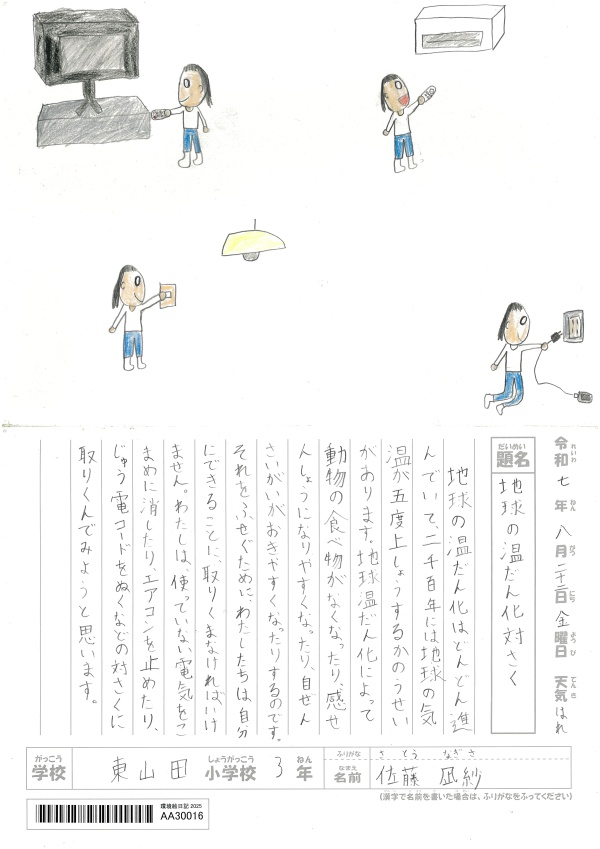 令和七年八月二十二日金曜日 天気はれ
れいわ ねん がつ にち ようび てんき
だいめい
題名
地球の温だん化対さく
地球の温だん化はどんどん進
んでいて、二千百年には地球の気
温が五度上しょうするかのうせい
があります。地球温だん化によって
動物の食べ物がなくなったり、感せ
んしょうになりやすくなったり、自ぜん
さいがいがおきやすくなったりするのです。
それをふせぐために、わたしたちは、自分
にできることに、取りくまなければいけ
ません。わたしは、使っていない電気をこ
まめに消したり、エアコンを止めたり、
じゅう電コードをぬくなどの対さくに
取りくんでみようと思います。
がっこう
学校
東山田
しょうがっこう
小学校
3
ねん
年
ふりがな
さとう なぎさ
なまえ
名前
佐藤 凪紗
(漢字で名前を書いた場合は、ふりがなをふってください)
環境絵日記 2025
AA30016